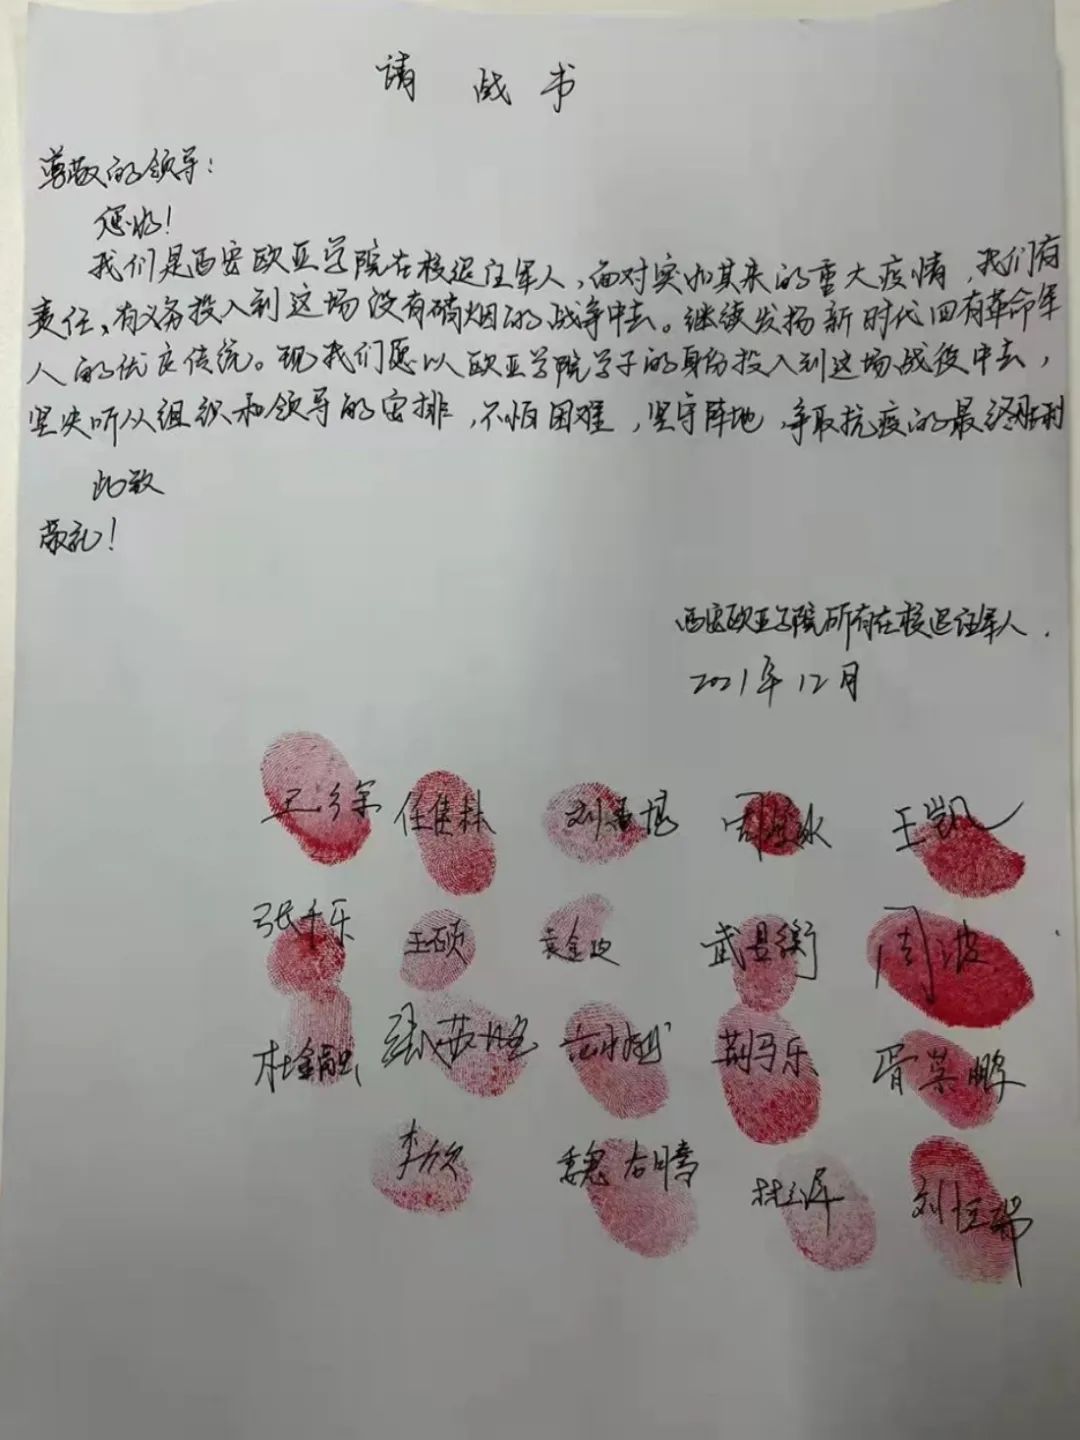 请战书
尊敬的领导:
您好!
我们是西安欧亚学院在校退役军人,面对突如其来的重大疫情,我们有
责任、有义务投入到这场没有硝烟的战争中去。继续发扬新时代四有革命军
人的优良传统。现我们愿以欧亚学院学子的身份投入到这场战役中去,
坚决听从组织和领导的安排,不怕困难,坚守阵地,争取抗疫的最终胜利
此致
敬礼!
西安欧亚学院所有在校退役军人.
2021年12月
任佳林 王凯
张千乐 王硕 武昱衡 周波
杜金融 荆马乐 胥英鹏
李欣 魏右腾